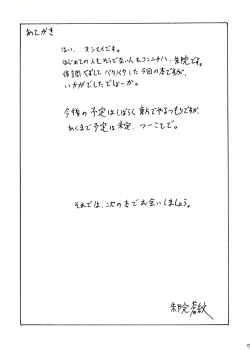 あとがき
はい、オシマイです。
はじめての人もそうでない人もコンニチハ、朱院です。
体調くずしてベリベリした今回の本ですが、
いかがでしたでしょーか。
今後の予定はしばらく東方でやるつもりですが、
あくまで予定は未定、っつーことで。
それでは、次の本でお会いしましょう。